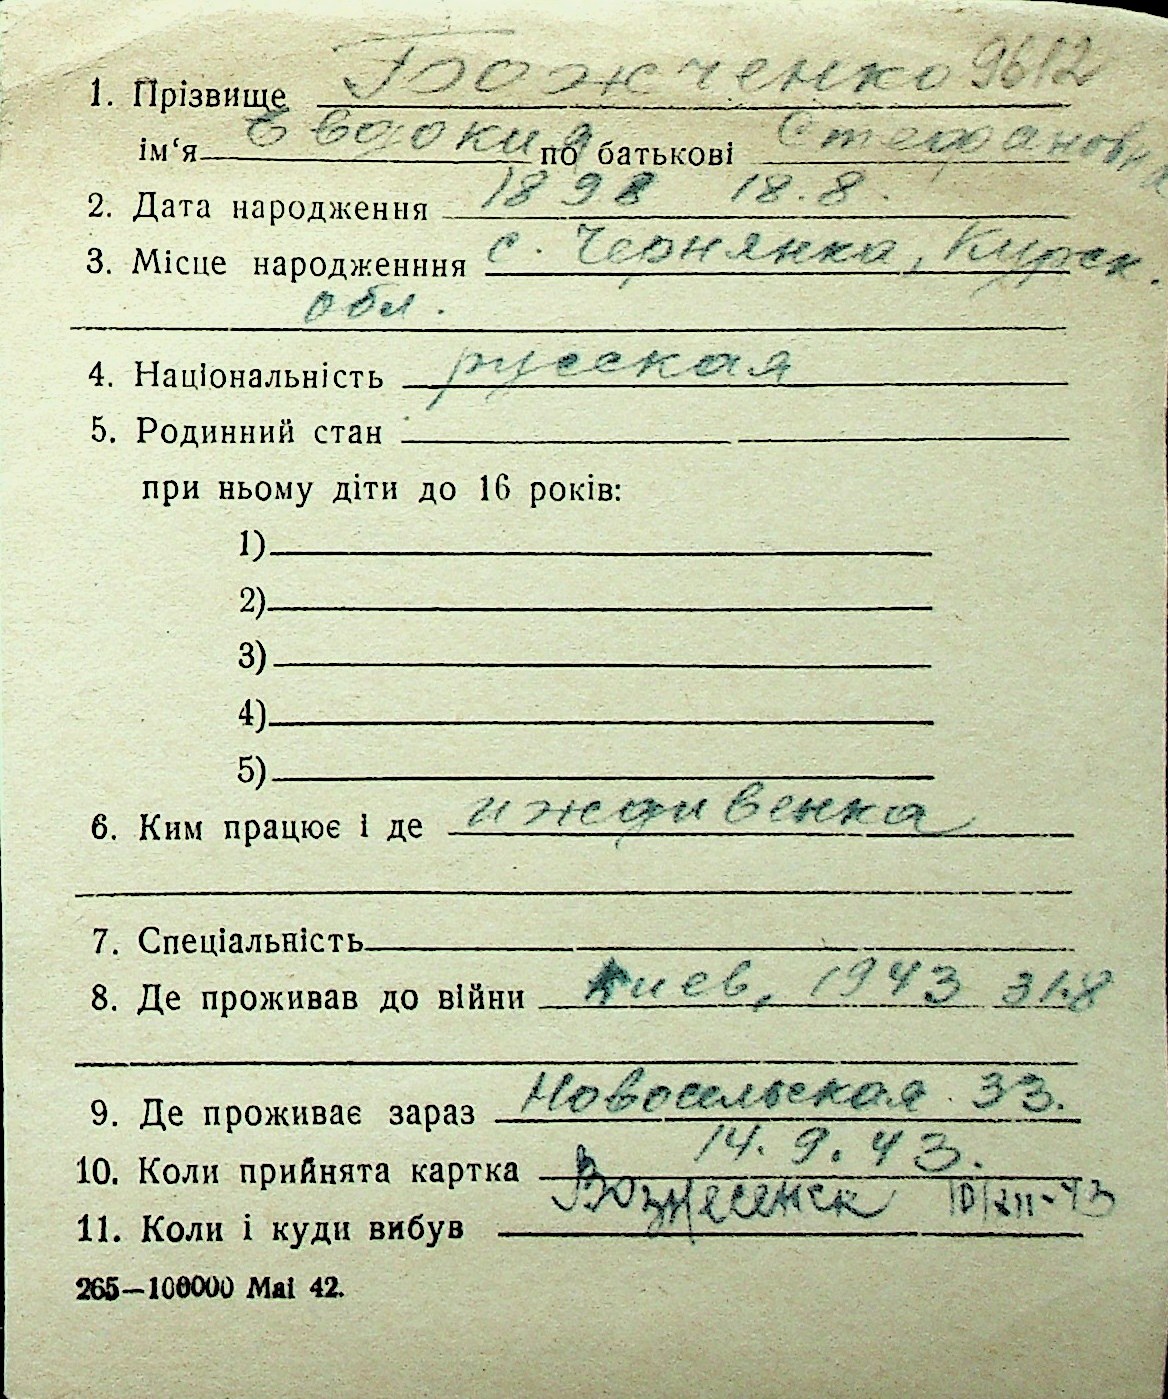 1. Прізвище Божченко 9612
ім‘я Евдокия по батькові Стефановна
2. Дата народження 1898 18.8.
3. Місце народженння с. Чернянка, Курск.
обл.
4. Національність русская
5. Родинний стан
при ньому діти до 16 років:
1)
2)
3)
4)
5)
6. Ким працює і де иждивенка
7. Спеціальність
8. Де проживав до війни Киев, 1943 31.8
9. Де проживає зараз Новосельская 33.
10. Коли прийнята картка 14. 9. 43.
11. Коли і куди вибув Вознесенск 10/XII-43
265—100000 Mai 42.